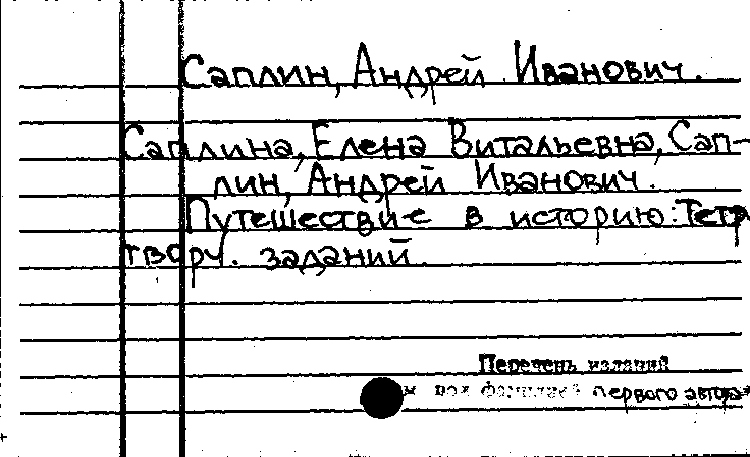 Саплин, Андрей Иванович.
Саплина, Елена Витальевна, Сап-
лин, Андрей Иванович.
Путешествие в историю: Тетр
творч. заданий.
Перечень изданий
под фамилией первого автора